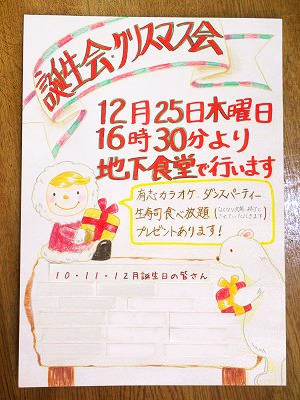 誕生会クリスマス会
12月25日木曜日
16時30分より
地下食堂で行います
有志カラオケ、ダンスパーティー
生寿司食べ放題
プレゼントあります!
10・11・12月誕生日の皆さん